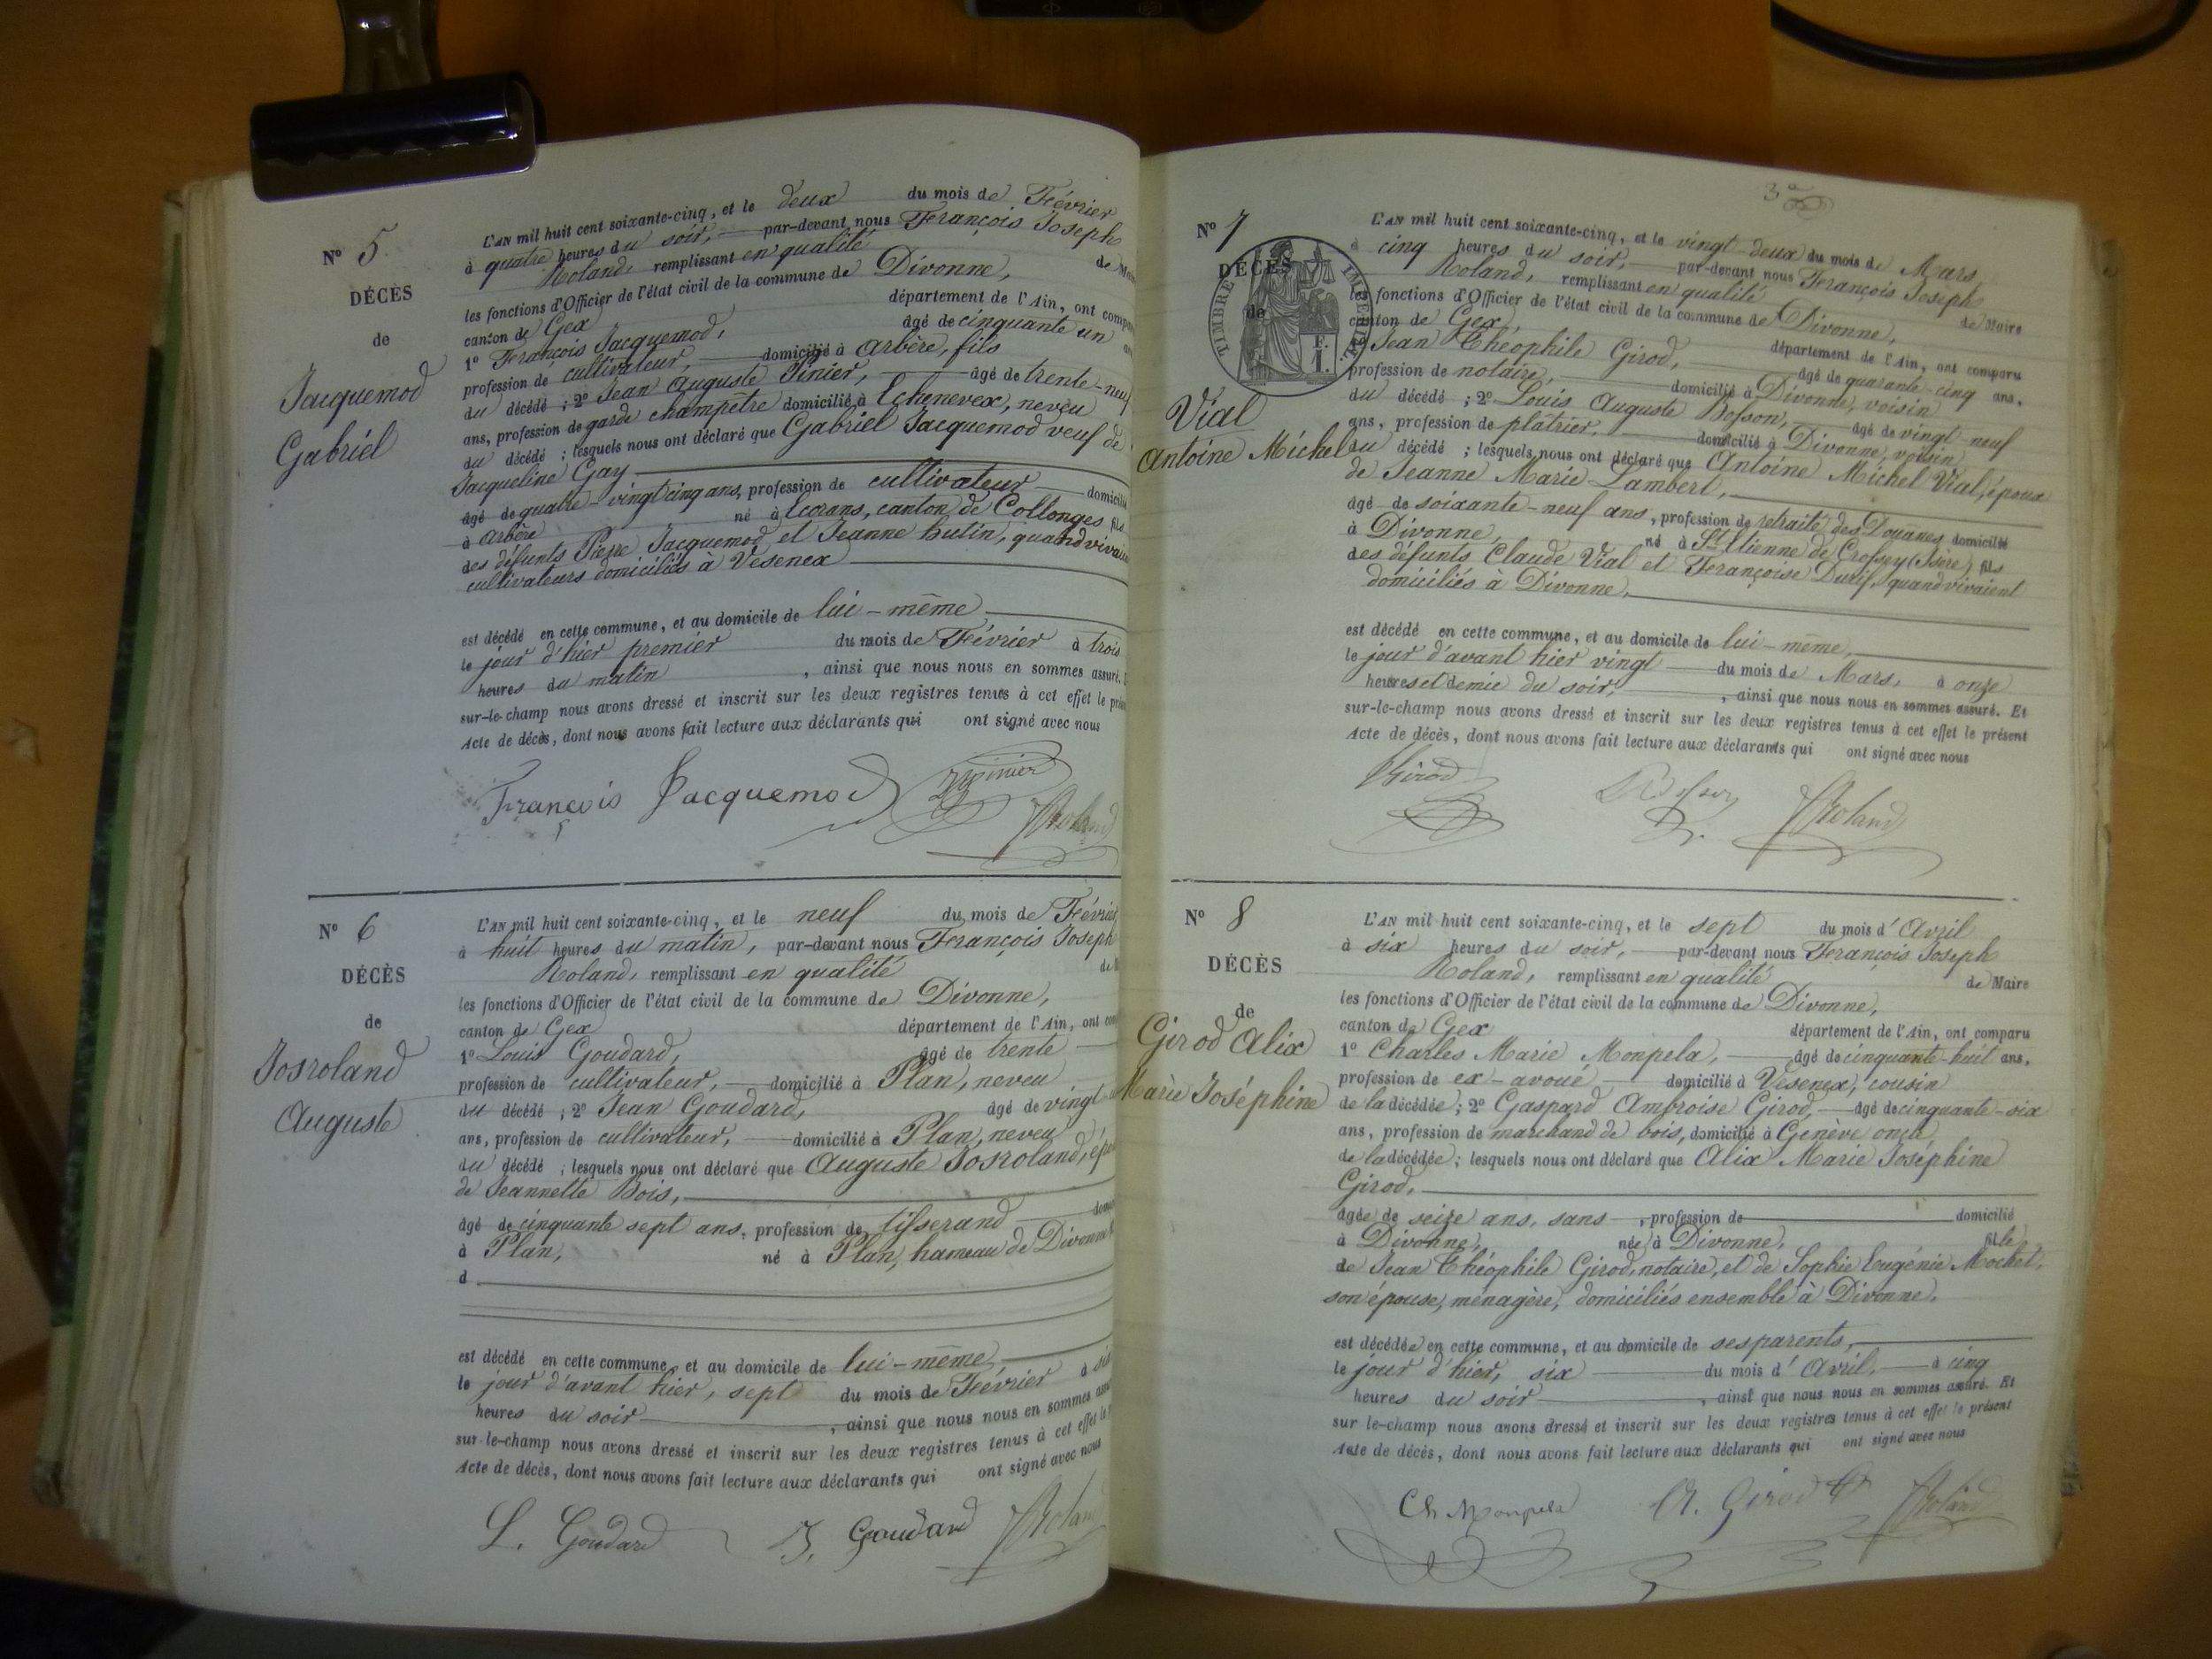 N° 5
DÉCÈS
de
Jacquemod
Gabriel
L'AN mil huit cent soixante-cinq, et le deux du mois de Février
à quatre heures du soir, par-devant nous François Joseph
Roland, remplissant en qualité de
les fonctions d'Officier de l'état civil de la commune de Divonne,
canton de Gex département de l'Ain, ont
1° François Jacquemod, âgé de cinquante un
profession de cultivateur, domicilié à Arbère, fils
du décédé ; 2° Jean Auguste Pinier, âgé de trente-neuf
ans, profession de garde champêtre domicilié à Echenevex, neveu
du décédé ; lesquels nous ont déclaré que Gabriel Jacquemod veuf de
Jacqueline Gay
âgé de quatre-vingt cinq ans, profession de cultivateur
à Arbère né à Ecorans, canton de Collonges fils
des défunts Pierre Jacquemod et Jeanne hutin, quand
cultivateurs domiciliés à Vésenex
est décédé en cette commune, et au domicile de lui-même
le jour d'hier premier du mois de Février à trois
heures du matin , ainsi que nous nous en sommes assuré.
sur-le-champ nous avons dressé et inscrit sur les deux registres tenus à cet effet le
Acte de décès, dont nous avons fait lecture aux déclarants qui ont signé avec nous
François Jacquemod Pinier Roland
N° 6
DÉCÈS
de
Josroland
Auguste
L'AN mil huit cent soixante-cinq, et le neuf du mois de Février
à huit heures du matin, par-devant nous François Joseph
Roland, remplissant en qualité
les fonctions d'Officier de l'état civil de la commune de Divonne,
canton de Gex département de l'Ain, ont
1° Louis Goudard, âgé de trente
profession de cultivateur, domicilié à Plan, neveu
du décédé ; 2° Jean Goudard, âgé de vingt
ans, profession de cultivateur, domicilié à Plan, neveu
du décédé ; lesquels nous ont déclaré que Auguste Josroland,
de Jeannette Bois,
âgé de cinquante sept ans, profession de tisserand
à Plan, né à Plan, hameau de Divonne
d
est décédé en cette commune, et au domicile de lui-même,
le jour d'avant hier, sept du mois de Février à
heures du soir , ainsi que nous nous en sommes
sur-le-champ nous avons dressé et inscrit sur les deux registres tenus à cet effet
Acte de décès, dont nous avons fait lecture aux déclarants qui ont signé avec nous
L. Goudard J. Goudard Roland
N° 7
DÉCÈS
de
TIMBRE IMPÉRIAL
Vial
Antoine Michel
L'AN mil huit cent soixante-cinq, et le vingt-deux du mois de Mars
à cinq heures du soir, par-devant nous François Joseph
Roland, remplissant en qualité de Maire
les fonctions d'Officier de l'état civil de la commune de Divonne,
canton de Gex, département de l'Ain, ont comparu
Jean Théophile Girod, âgé de quarante-cinq ans,
profession de notaire, domicilié à Divonne, voisin
du décédé ; 2° Louis Auguste Bosson, âgé de vingt-neuf
ans, profession de plâtrier, domicilié à Divonne, voisin
du décédé ; lesquels nous ont déclaré que Antoine Michel Vial, époux
de Jeanne Marie Lambert,
âgé de soixante-neuf ans, profession de retraité des Douanes domicilié
à Divonne, né à St Etienne de Crossey (Isère), fils
des défunts Claude Vial et Françoise Durif, quand vivaient
domiciliés à Divonne,
est décédé en cette commune, et au domicile de lui-même,
le jour d'avant hier vingt du mois de Mars, à onze
heures et demie du soir, , ainsi que nous nous en sommes assuré. Et
sur-le-champ nous avons dressé et inscrit sur les deux registres tenus à cet effet le présent
Acte de décès, dont nous avons fait lecture aux déclarants qui ont signé avec nous
Girod Bosson Roland
N° 8
DÉCÈS
de
Girod Alix
Marie Joséphine
L'AN mil huit cent soixante-cinq, et le sept du mois d'Avril
à six heures du soir, par-devant nous François Joseph
Roland, remplissant en qualité de Maire
les fonctions d'Officier de l'état civil de la commune de Divonne,
canton de Gex département de l'Ain, ont comparu
1° Charles Marie Monpela, âgé de cinquante-huit ans,
profession de ex-avoué domicilié à Vésenex, cousin
de la décédée ; 2° Gaspard Ambroise Girod, âgé de cinquante-six
ans, profession de marchand de bois, domicilié à Genève oncle
de la décédée ; lesquels nous ont déclaré que Alix Marie Joséphine
Girod,
âgée de seize ans, sans , profession de domicilié
à Divonne, née à Divonne, fille
de Jean Théophile Girod, notaire, et de Sophie Eugénie Mochet,
son épouse, ménagère, domiciliés ensemble à Divonne.
est décédée en cette commune, et au domicile de ses parents,
le jour d'hier, six du mois d'Avril, à cinq
heures du soir , ainsi que nous nous en sommes assuré. Et
sur le-champ nous avons dressé et inscrit sur les deux registres tenus à cet effet le présent
Acte de décès, dont nous avons fait lecture aux déclarants qui ont signé avec nous
Ch Monpela A. Girod Roland